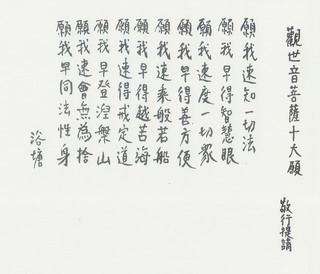 觀世音菩薩十大願
敬行提請
願我速知一切法
願我早得智慧眼
願我速度一切眾
願我早得善方便
願我速乘般若船
願我早得越苦海
願我速得戒定道
願我早登涅槃山
願我速會無為捨
願我早同法性身
浴塘